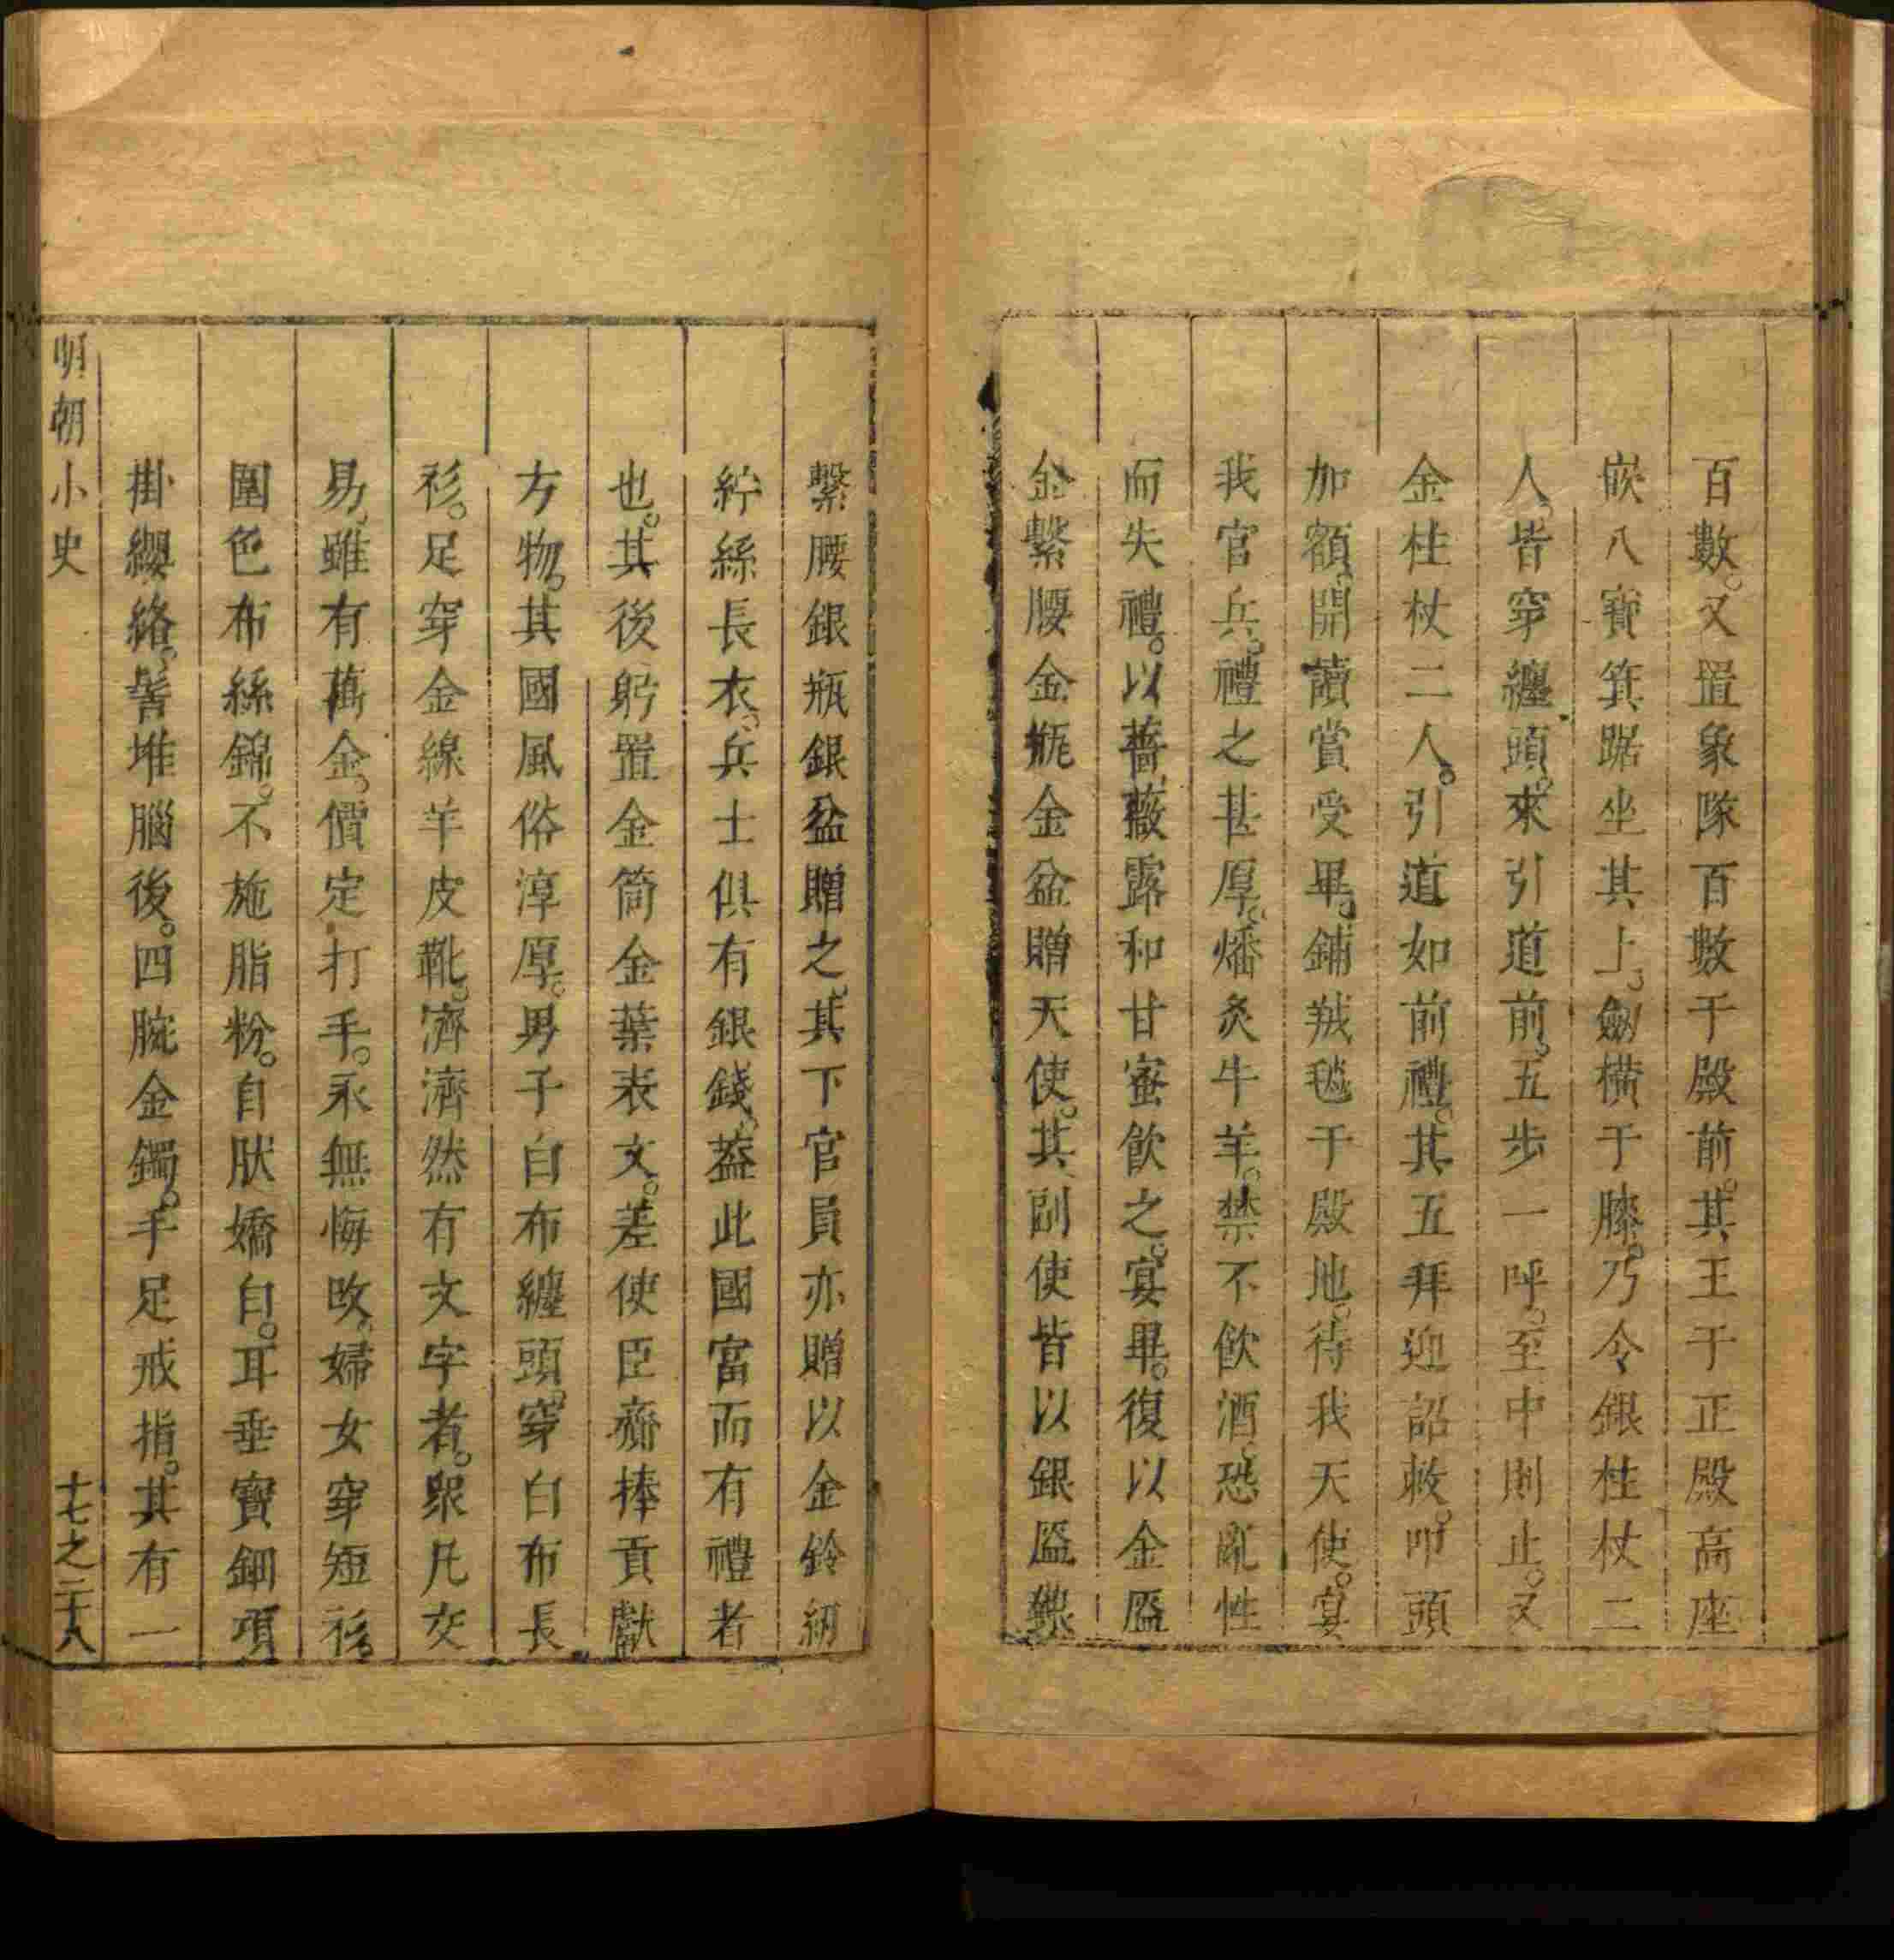 百數。又置象隊百數于殿前。其王于正殿高座
嵌八寶箕踞坐其上。劒橫于膝。乃令銀柱杖二
人。皆穿纏頭。來引道前。五步一呼。至中則止。又
金柱杖二人。引道如前禮。其五拜迎詔敕。叩頭
加額。開讀賞受畢。鋪羢毯于殿地。待我天使。宴
我官兵。禮之甚厚。燔炙牛羊。禁不飲酒。恐亂性
而失禮。以薔薇露和甘蜜飲之。宴畢。復以金盔
金繫腰金瓶金盆贈天使。其副使皆以銀盔銀
繫腰銀瓶銀盆贈之。其下官員亦贈以金鈴紉
紵絲長衣。兵士俱有銀錢。葢此國富而有禮者
也。其後躬置金筒金葉表文。差使臣齎捧貢獻
方物。其國風俗淳厚。男子白布纏頭。穿白布長
衫。足穿金線羊皮靴。濟濟然有文字者。眾凡交
易。雖有萬金。價定打手。永無悔改。婦女穿短衫
圍色布絲錦。不施脂粉。自狀嬌白。耳垂寶鈿。項
掛纓絡。髻堆腦後。四腕金鐲。手足戒指。其有一
明朝小史
十七之二十八